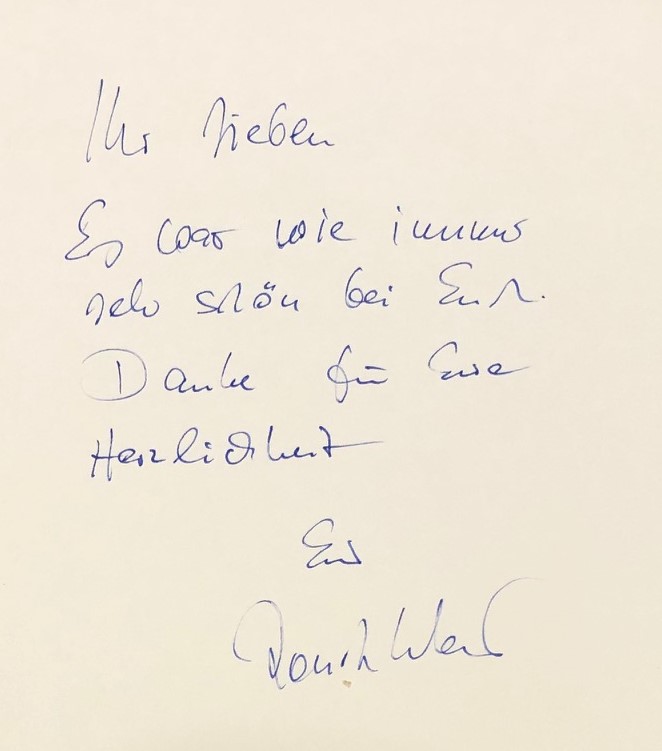 Ihr Lieben
Es war wie immer
sehr schön bei Euch.
Danke für Eure
Herzlichkeit
Euer